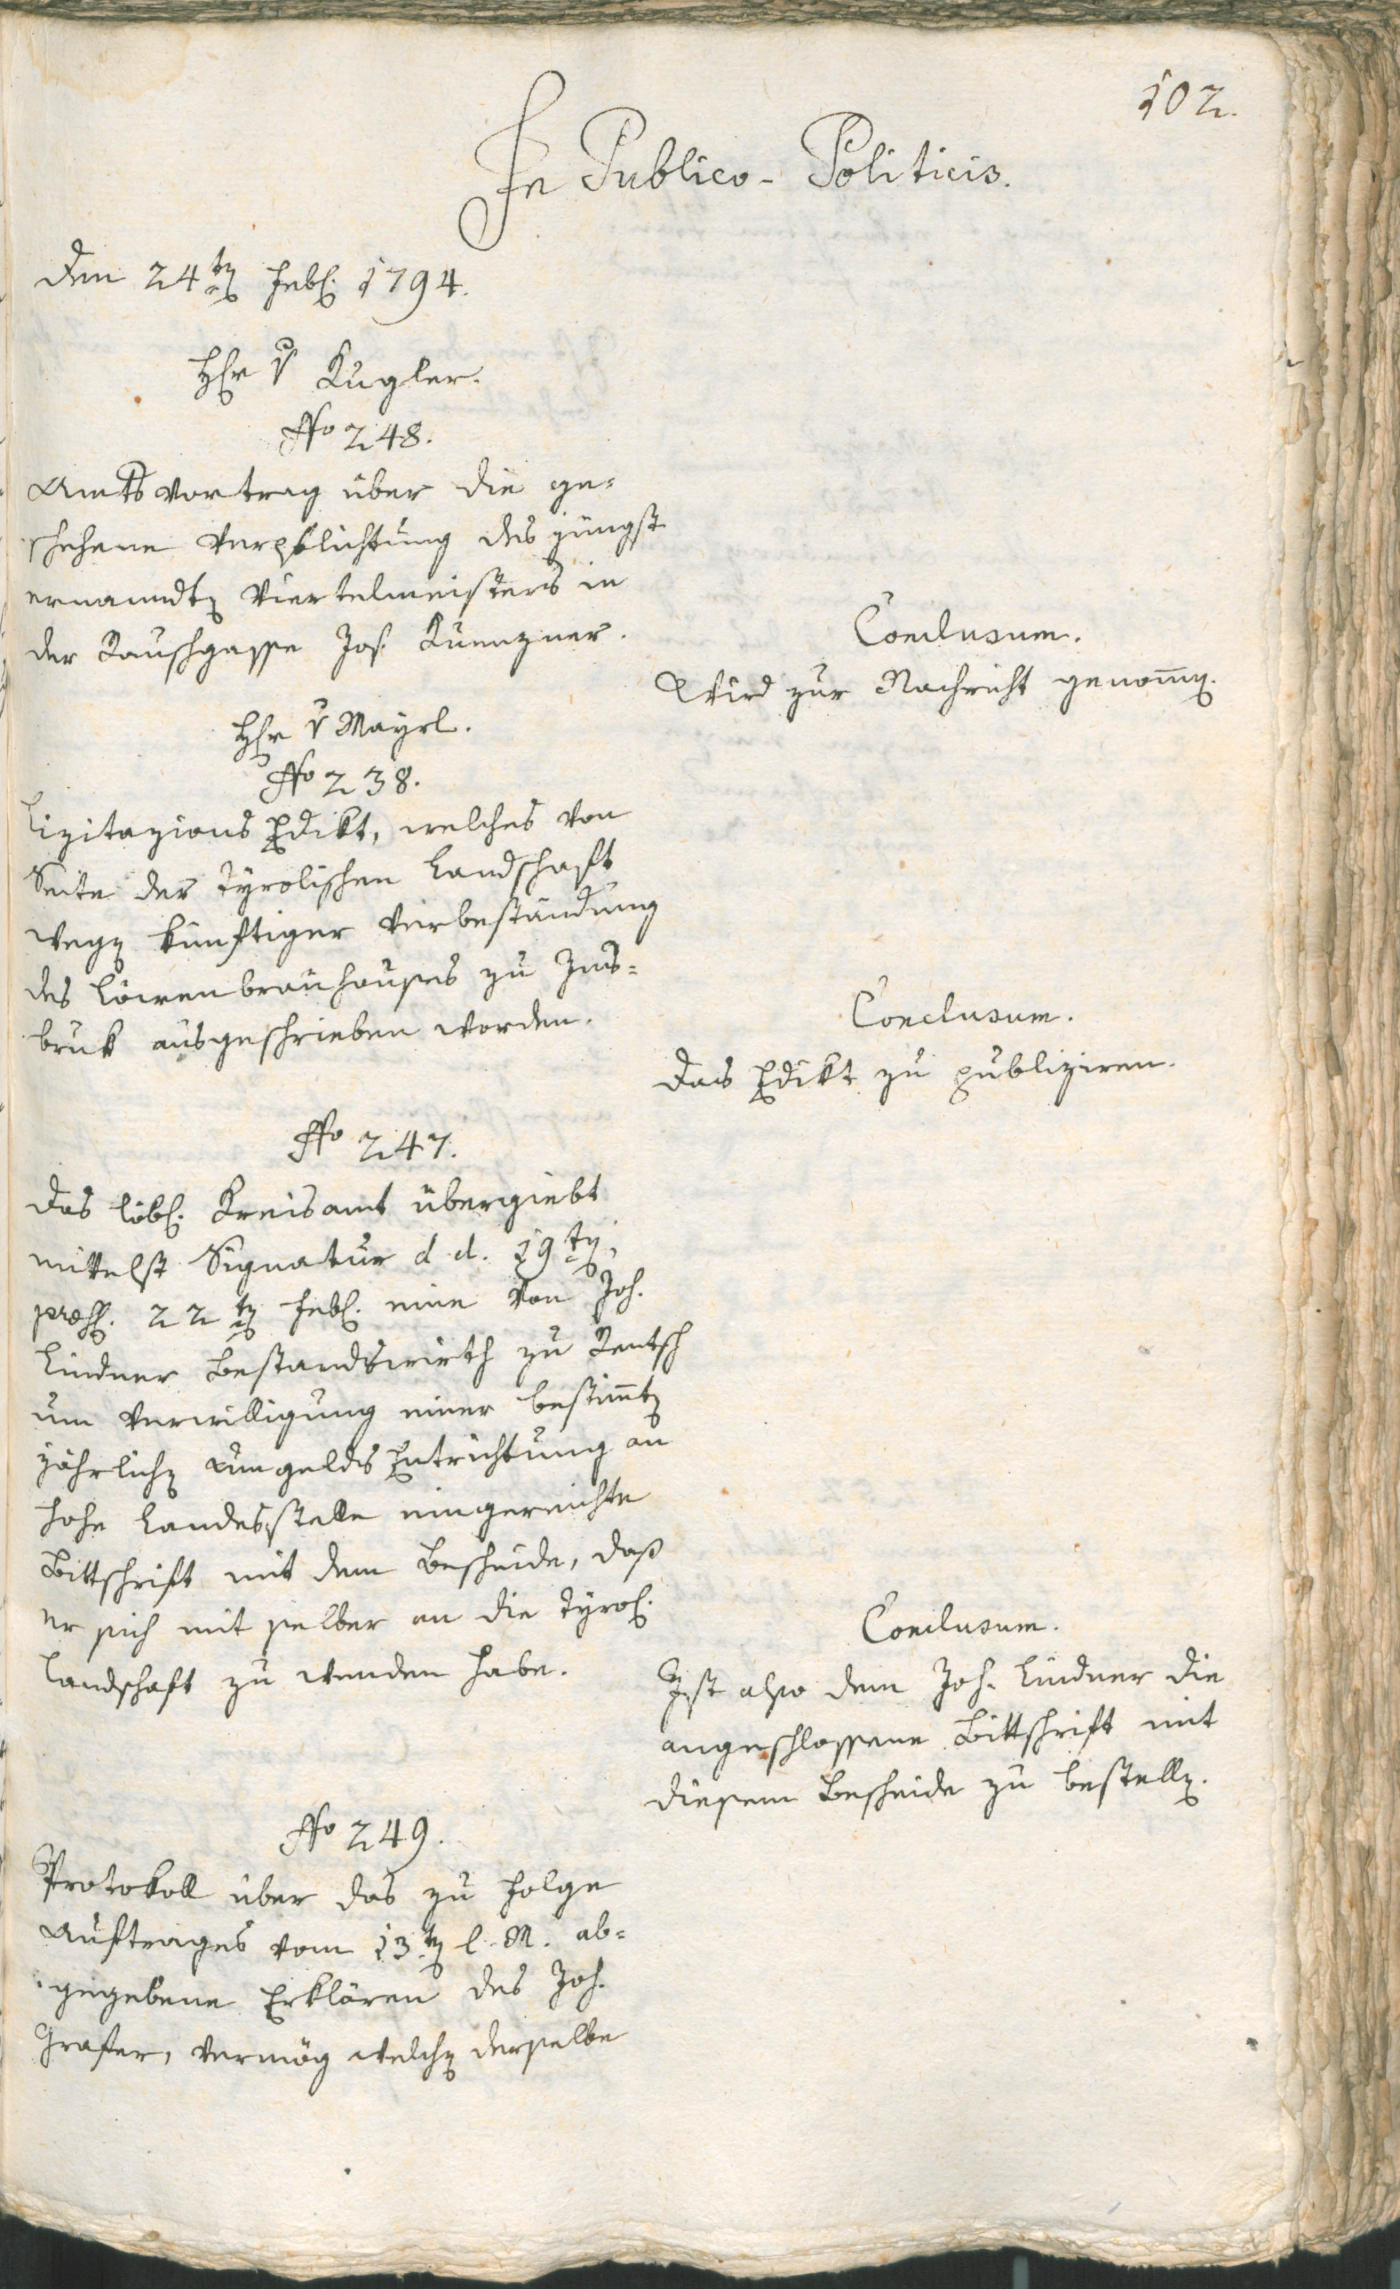 102.
In Publico-Politicis.
Den 24ten Febr. 1794.
Herr v Kugler.
No 248.
Amtsvortrag über die ge-
schehene Verpflichtung des jüngst
ernanndten Viertelmeisters in
der Rauschgasse Jos. Kuenzner.
Conclusum.
Wird zur Nachricht genommen.
Herr v Mayrl.
No 238.
Lizitazions Edikt, welches von
Seite der tyrolischen Landschaft
wegen künftiger Verbeständung
des Löwenbräuhauses zu Ins-
bruk ausgeschrieben worden.
Conclusum.
Das Edikt zu publiziren.
No 247.
Das löbl. Kreisamt übergiebt
mittelst Signatur d. d. 19ten,
præs. 22ten Febr. eine von Joh.
Lindner Bestandswirth zu Rentsch
um Verwilligung einer bestimmten
jährlichen Umgelds Entrichtung an
hohe Landesstelle eingereichte
Bittschrift mit dem Bescheide, daß
er sich mit selber an die tyrol.
Landschaft zu wenden habe.
Conclusum.
Ist also dem Joh. Lindner die
angeschlossene Bittschrift mit
diesem Bescheide zu bestellen.
No 249.
Protokoll über das zu Folge
Auftrages vom 13ten l. M. ab-
gegebene Erklären des Joh.
Graser, vermög welchen derselbe